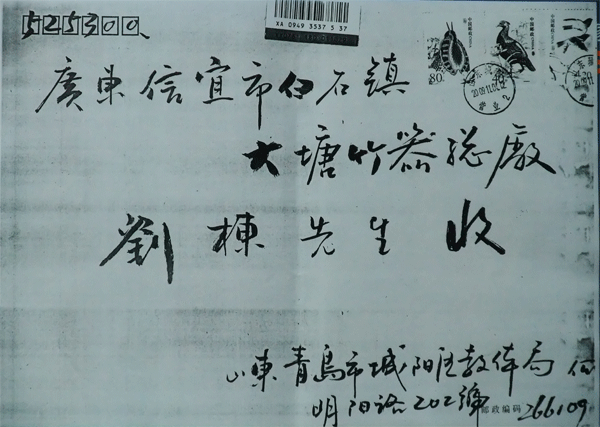 525300
XA 0949 3537 5 37
廣東信宜市白石鎮
80
大塘竹器總廠
劉棟先生 收
山東青島市城阳区教体局
明阳路202號 邮政编码 266109